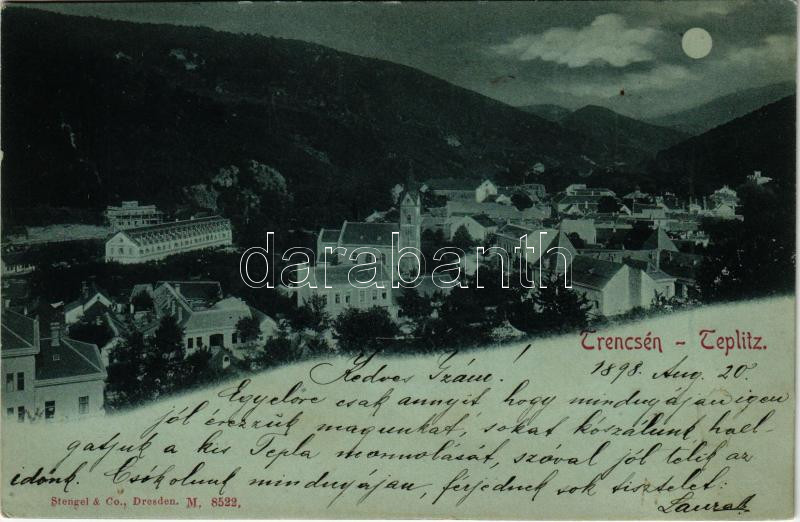 darabanth
Trencsén - Teplitz.
1898. Aug. 20.
Kedves Izám!
Egyelőre csak annyit hogy mindnyájan igen
jól érezzük magunkat, sokat kószálunk, hall-
gatjuk a kis Tepla mormolását, szóval jól telik az
időnk. Csókolunk mindnyájan, férjednek sok tisztelet:
Stengel & Co., Dresden. M. 8522.